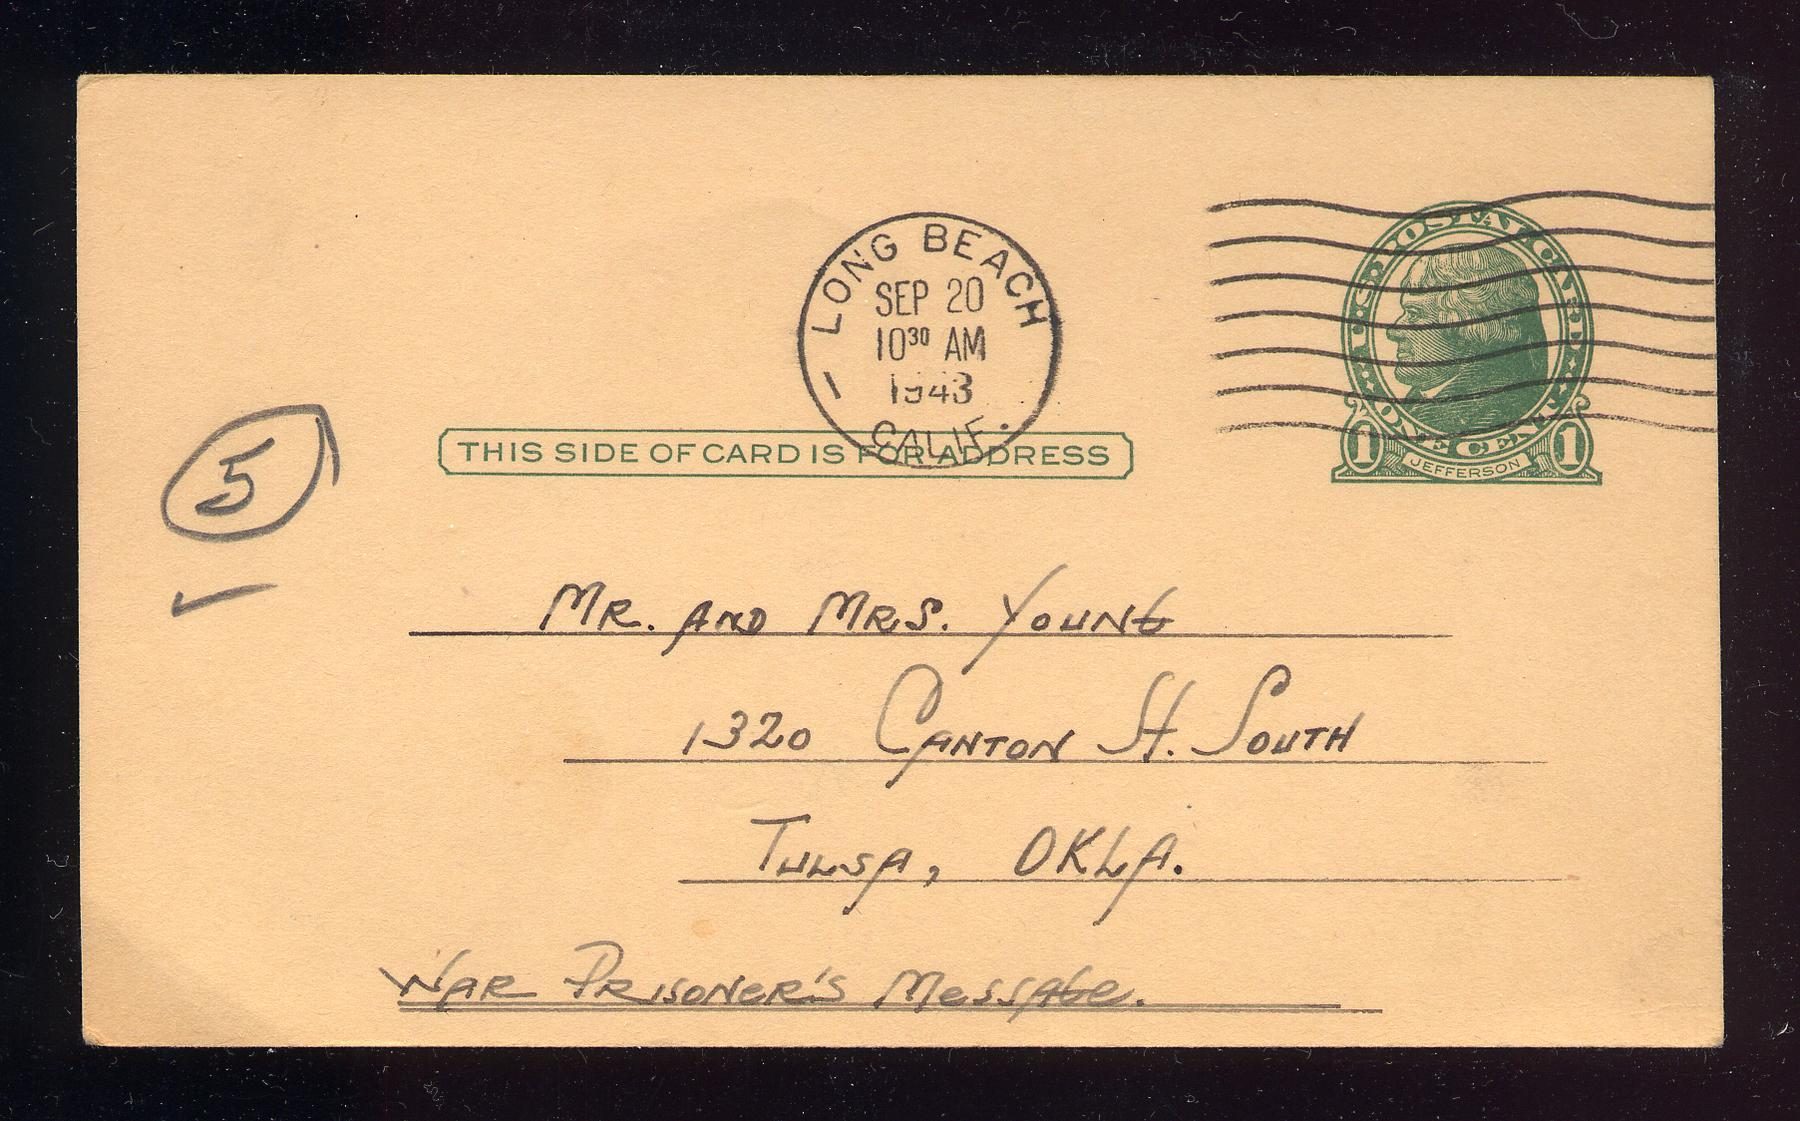 LONG BEACH
SEP 20
10³⁰ AM
1943
1
CALIF.
U·S·POSTAL CARD
ONE CENT
1 JEFFERSON 1
THIS SIDE OF CARD IS FOR ADDRESS
5
MR. AND MRS. YOUNG
1320 CANTON St. SOUTH
TULSA, OKLA.
WAR PRISONER'S MESSAGE.